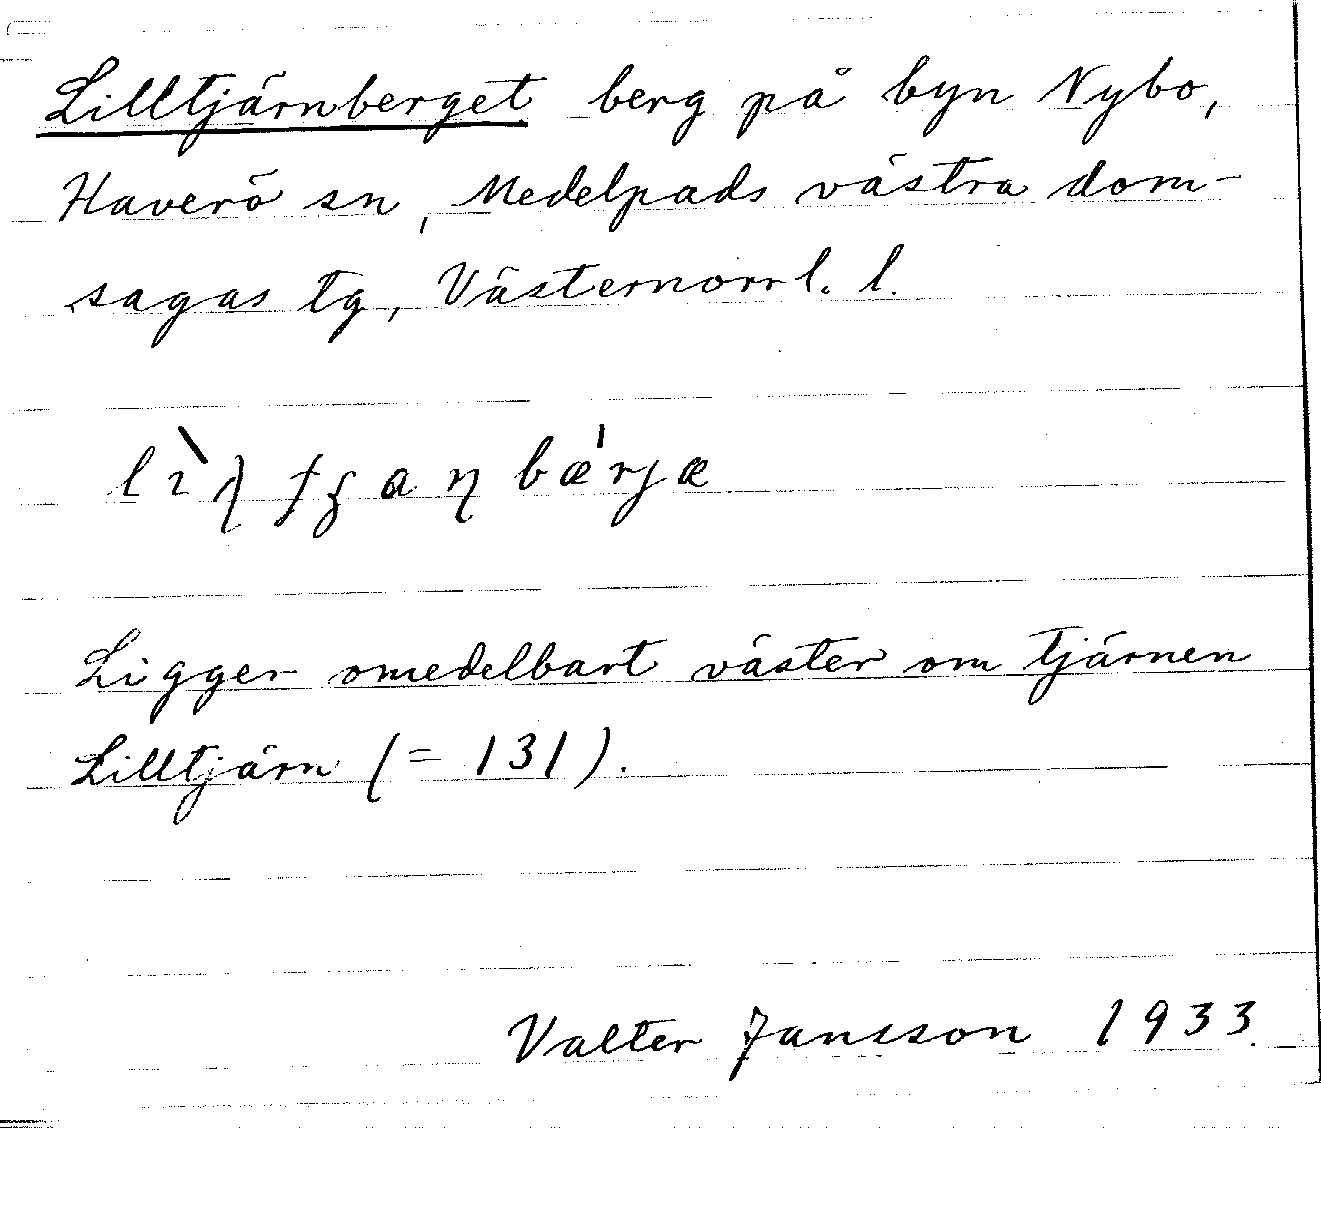 Lilltjärnberget berg på byn Nybo,
Haverö sn, Medelpads västra dom-
sagas tg, Västernorrl. l.
Ligger omedelbart väster om tjärnen
Lilltjärn (= 131).
Valter Jansson 1933.